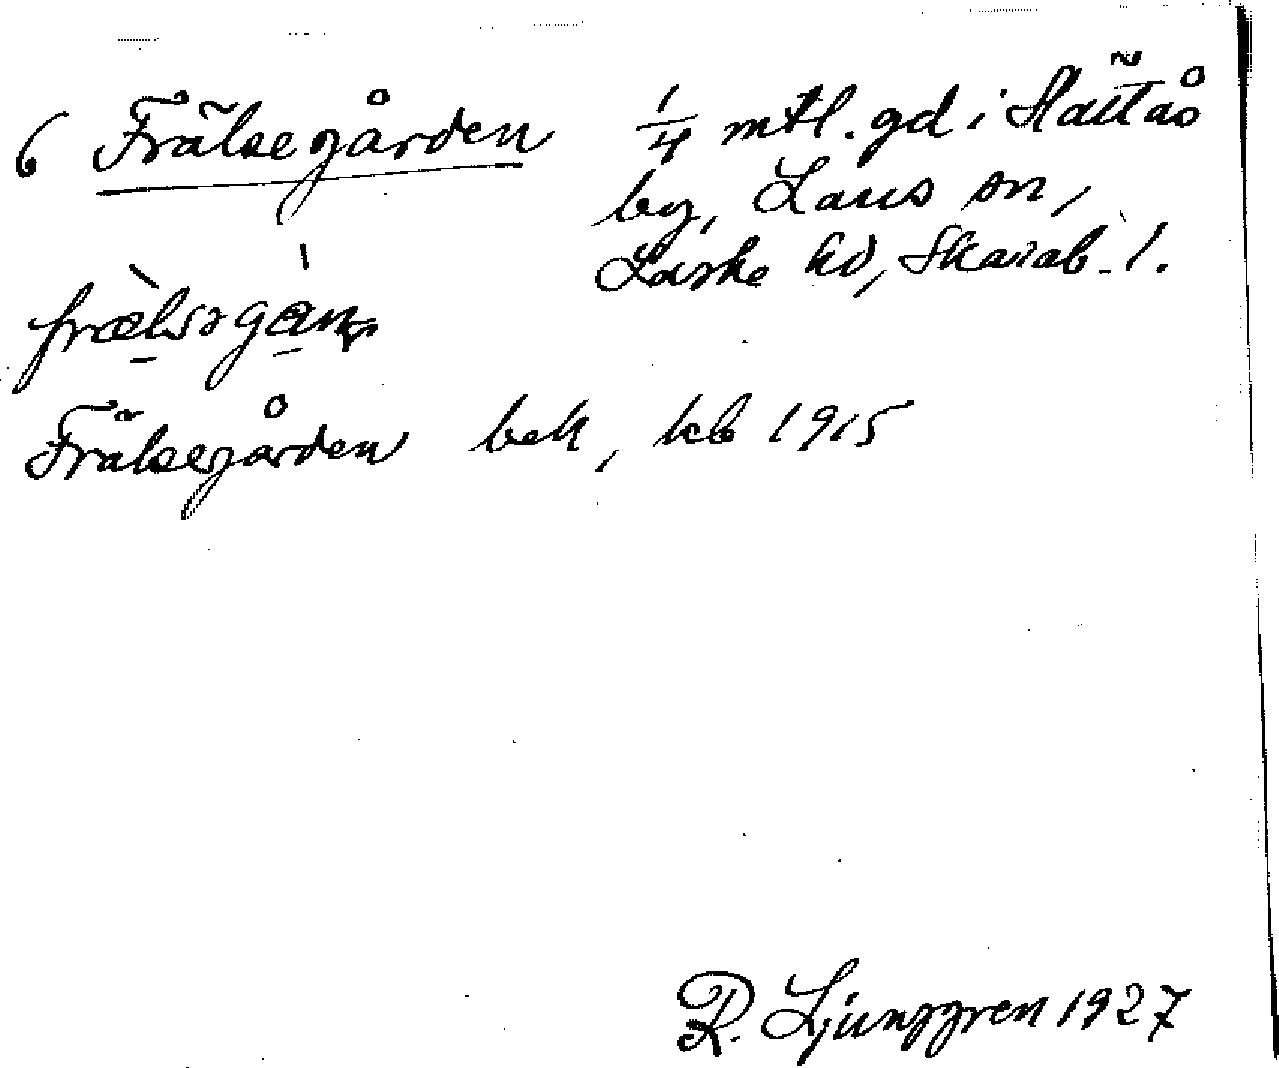 6 Frälsegården 1/4 mtl. gd i Slättås
by, Laus sn,
Laske hd, Skarab. l.
frælsəgan
Frälsegården bek, kb 1915
R. Ljunggren 1927